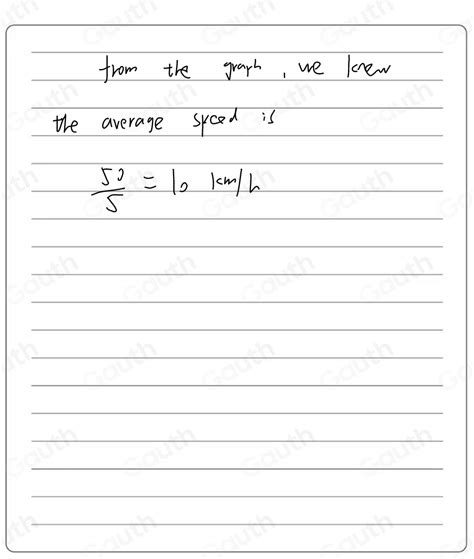 from the graph, we knew
the average speed is
50/5 = 10 km/h